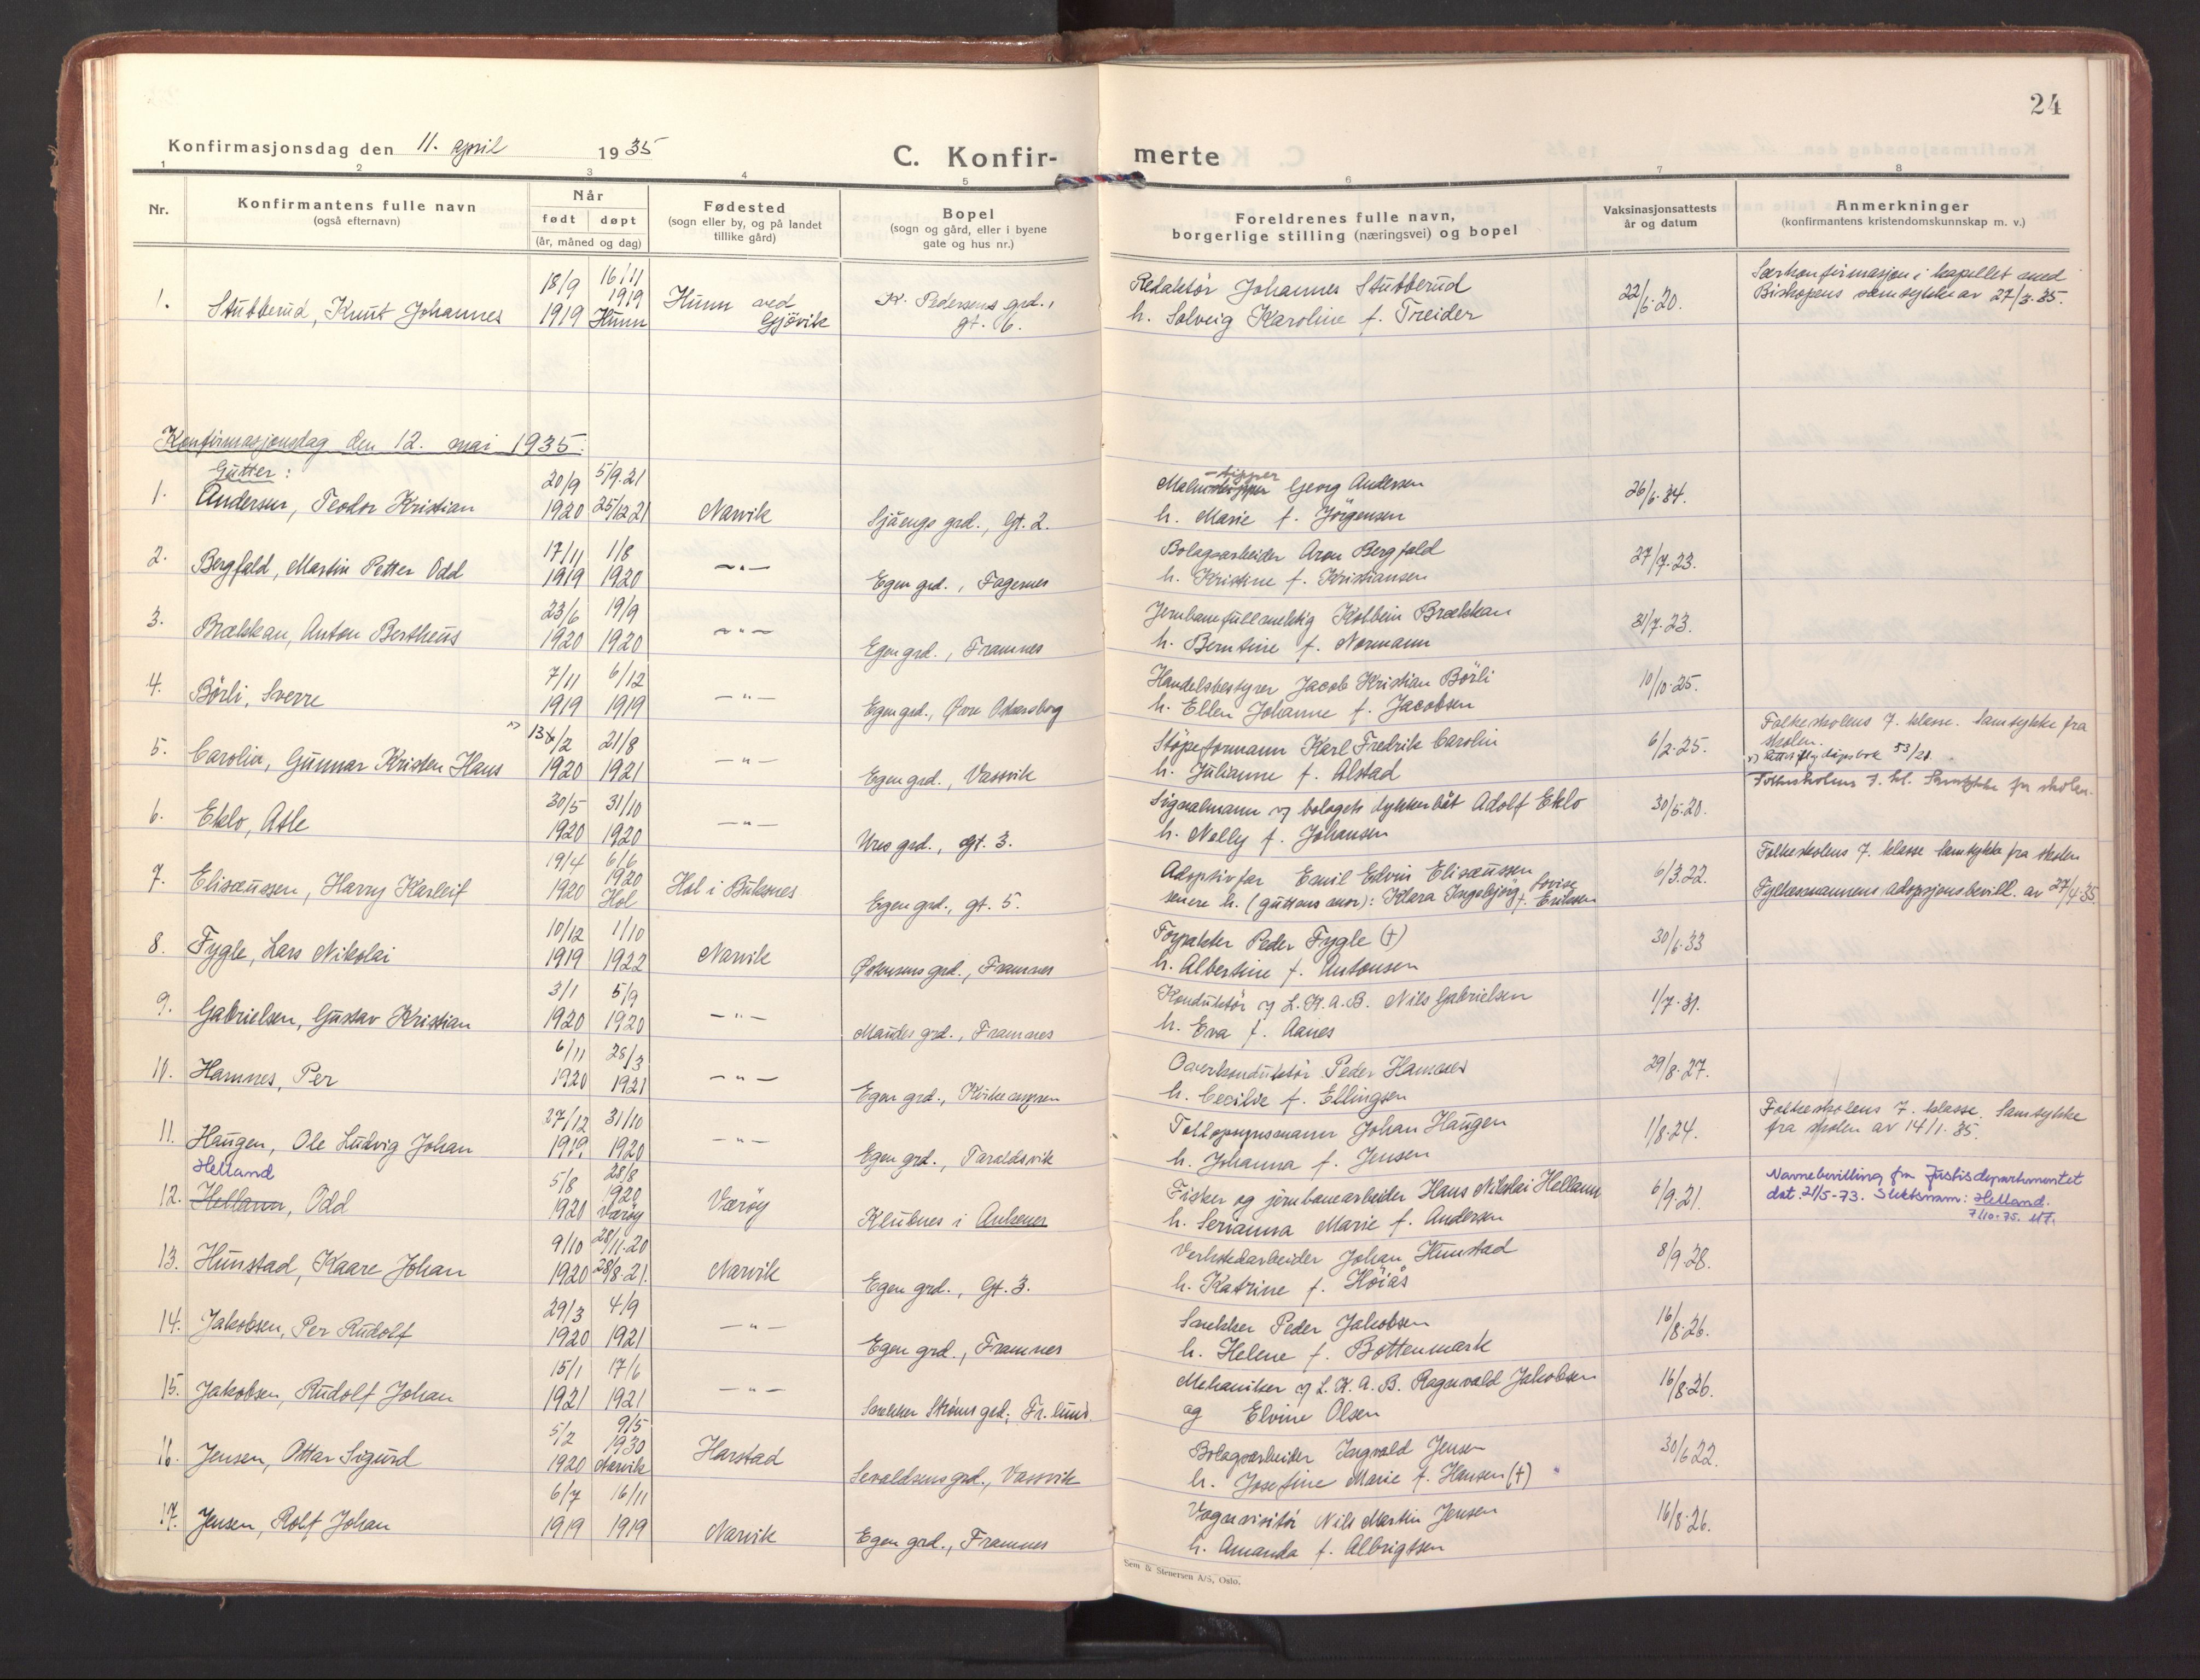 24
Konfirmasjonsdag den 11. april 1935
C. Konfir- merte
1 2 3 4 5 6 7 8
Nr.
Konfirmantens fulle navn
(også efternavn)
Når
født døpt
(år, måned og dag)
Fødested
(sogn eller by, og på landet
tillike gård)
Bopel
(sogn og gård, eller i byene
gate og hus nr.)
Foreldrenes fulle navn,
borgerlige stilling (næringsvei) og bopel
Vaksinasjonsattests
år og datum
Anmerkninger
(konfirmantens kristendomskunnskap m. v.)
1. Stubberud, Knut Johannes
18/9 1919
16/11 1919 Hunn
Hunn ved Gjövik
K. Pedersens grd., gt. 6.
Redaktör Johannes Stubberud
h. Solveig Karoline f. Treider
22/6.20.
Særkonfirmasjon i kapellet med
Biskopens samtykke av 27/3.35.
Konfirmasjonsdag den 12. mai 1935.
Gutter:
1. Andersen, Teodor Kristian
20/9 1920
5/9.21 25/12 21
Narvik
Sjåengs grd., Gt. 2.
Malm- tipper Georg Andersen
h. Marie f. Jörgensen
26/6.34.
2. Bergfald, Martin Petter Odd
17/11 1919
1/8 1920
—"—
Egen grd., Fagernes
Bolagsarbeider Aron Bergfald
h. Kristine f. Kristiansen
27/7.23.
3. Brækkan, Anton Bertheus
23/6 1920
19/9 1920
—"—
Egen grd., Framnes
Jernbanefullmektig Kolbein Brækkan
h. Berntine f. Normann
31/7.23.
4. Börli, Sverre
7/11 1919
6/12 1919
—"—
Egen grd., Øvre Oskarsborg
Handelsbestyrer Jacob Kristian Börli
h. Ellen Johanne f. Jacobsen
10/10.25.
5. Carolin, Gunnar Kristen Hans
13/2 1920
21/8 1921
—"—
Egen grd., Vassvik
Støpeformann Karl Fredrik Carolin
h. Julianne f. Alstad
6/2.25.
Folkeskolens 7. klasse. Samtykke fra
skolen.
x) Rettet iflg dåpsbok 53/21
6. Eklo, Atle
30/5 1920
31/10 1920
—"—
Ures grd., gt. 3.
Signalmann v/ bolagets dykkerbåt Adolf Eklo
h. Nelly f. Johansen
30/6.20.
Folkeskolens 7. kl. Samtykke fra skolen.
7. Elisæussen, Harry Karleif
19/4 1920
6/6 1920 Hol
Hol i Buksnes
Egen grd., gt. 5.
Adoptivfar Emil Edvin Elisæussen
senere h. (guttens mor): Klara Ingebjörg Lovise f. Eriksen
6/3.22.
Folkeskolens 7. klasse Samtykke fra skolen
Fylkesmannens adopsjonsbevill. av 27/4.35.
8. Fygle, Lars Nikolai
10/12 1919
1/10 1922
Narvik
Øskensens grd., Framnes
Forpakter Peder Fygle (†)
h. Albertine f. Antonsen
30/6.33
9. Gabrielsen, Gustav Kristian
3/1 1920
5/9 1920
—"—
Maudes grd., Framnes
Konduktör v/ L.K.A.B. Nils Gabrielsen
h. Eva f. Aanes
1/7.31.
10. Hamnes, Per
6/11 1920
28/3 1921
—"—
Egen grd., Kvikemyren
Overkonduktör Peder Hamnes
h. Cecilie f. Ellingsen
29/8.27.
11. Haugen, Ole Ludvig Johan
27/12 1919.
31/10 1920
—"—
Egen grd., Taraldsvik
Tolloppsynsmann Johan Haugen
h. Johanna f. Jensen
1/8.24.
Folkeskolens 7. klasse. Samtykke
fra skolen av 14/1.35.
Helland
12. Hellann, Odd
5/8 1920
28/8 1920 Værøy
Værøy
Klubnes i Ankenes
Fisker og jernbanearbeider Hans Nikolai Hellann
h. Serianna Marie f. Andersen
6/9.21.
Navnebevilling fra Justisdepartementet
dat. 21/5-73. Slektsnavn: Helland.
7/10-75.
13. Hunstad, Kaare Johan
9/10 1920
28/11.20 28/8.21.
Narvik
Egen grd., Gt. 3.
Verkstedarbeider Johan Hunstad
h. Katrine f. Höiås
8/9.28.
14. Jakobsen, Per Rudolf
29/3 1920
4/9 1921
—"—
Egen grd., Framnes
Snekker Peder Jakobsen
h. Helene f. Bottenmark
16/8.26.
15. Jakobsen, Rudolf Johan
15/1 1921
17/6 1921
—"—
Snekker Ströms grd., Fr.lund.
Mekaniker v/ L.K.A.B. Ragnvald Jakobsen
og Elvine Olsen
16/8.26.
16. Jensen, Ottar Sigurd
5/2 1920
9/5 1930 Narvik
Harstad
Sevaldsens grd., Vassvik
Bolagsarbeider Ingvald Jensen
h. Josefine Marie f. Hansen (†)
30/6 22.
17. Jensen, Rolf Johan
6/7 1919
16/11 1919
Narvik
Egen grd., Framnes
Vognvisitör Nils Martin Jensen
h. Amanda f. Albrigtsen
16/8.26.
Sem & Stenersen A/S, Oslo.